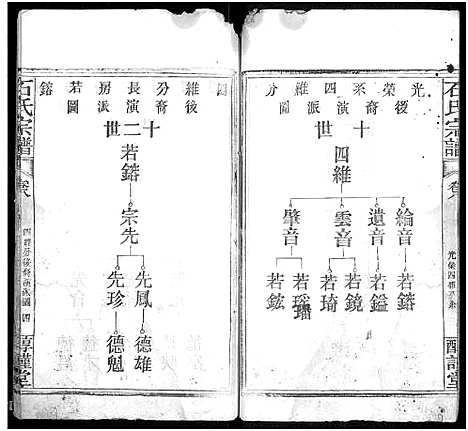 石氏宗譜
卷八
光榮系四維分
後裔演派圖
十世
四維
綸音
遺音
雲音
肇音
若鎔
若鎰
若鏡
若琦
若璠
若鉉
四維分長房若鎔
後裔演派圖
十二世
若鎔
宗先
先鳳
先珍
德雄
德魁
石氏宗譜
卷八
四維分後裔演派圖
四